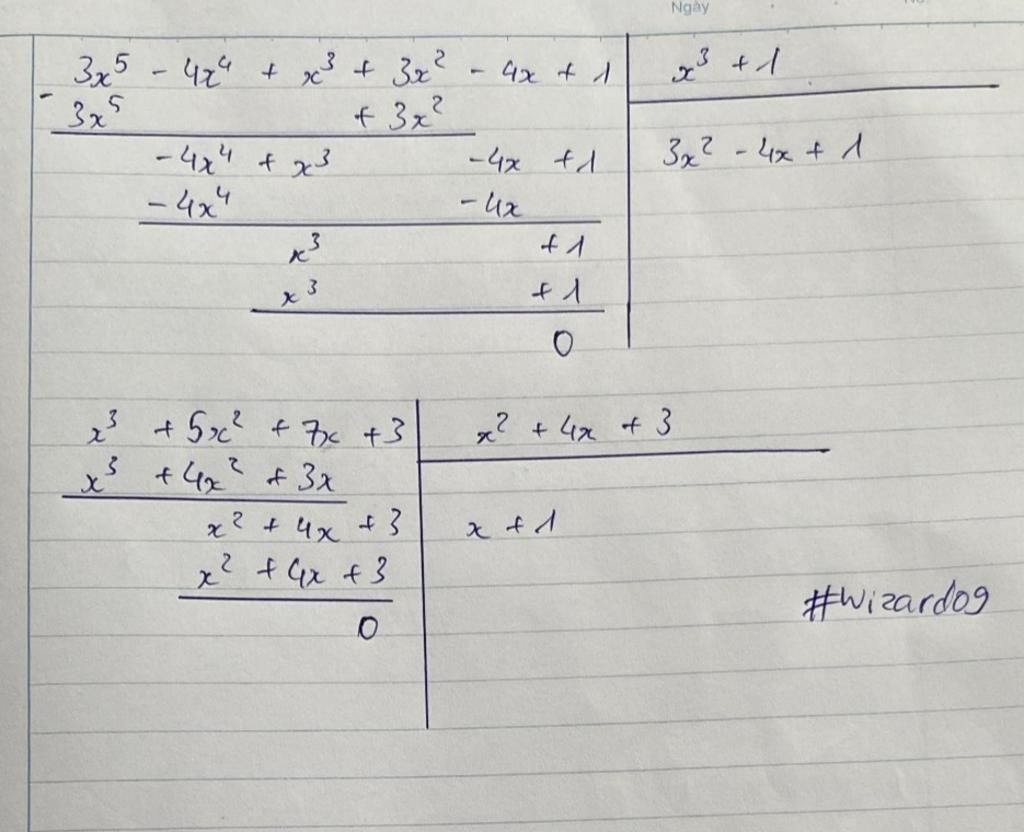 Ngày
3x⁵ - 4x⁴ + x³ + 3x² - 4x + 1 | x³ + 1
- 3x⁵ + 3x²
-4x⁴ + x³ -4x +1 | 3x² - 4x + 1
-4x⁴ -4x
x³ +1
x³ +1
0
x³ + 5x² + 7x + 3 | x² + 4x + 3
x³ + 4x² + 3x
x² + 4x + 3 | x + 1
x² + 4x + 3
0
#Wizard09